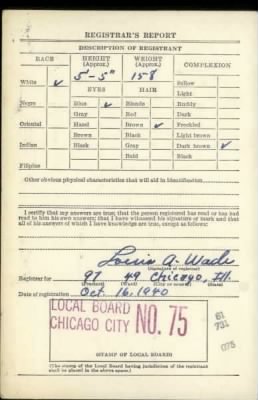 REGISTRAR'S REPORT
DESCRIPTION OF REGISTRANT
RACE HEIGHT (Approx.) WEIGHT (Approx.) COMPLEXION
White ✓ 5'-5" 158 Sallow
EYES HAIR Light
Negro Blue ✓ Blonde Ruddy
Gray Red Dark
Oriental Hazel Brown ✓ Freckled
Brown Black Light brown
Indian Black Gray Dark brown ✓
Bald Black
Filipino
Other obvious physical characteristics that will aid in identification
I certify that my answers are true; that the person registered has read or has had
read to him his own answers; that I have witnessed his signature or mark and that
all of his answers of which I have knowledge are true, except as follows:
Louis A. Wade
(Signature of registrar)
Registrar for 97 49 Chicago, Ill.
(Precinct) (Ward) (City or county) (State)
Date of registration Oct. 16, 1940
LOCAL BOARD NO. 75
CHICAGO CITY
61
731
075
(STAMP OF LOCAL BOARD)
(The stamp of the Local Board having jurisdiction of the registrant
shall be placed in the above space.)